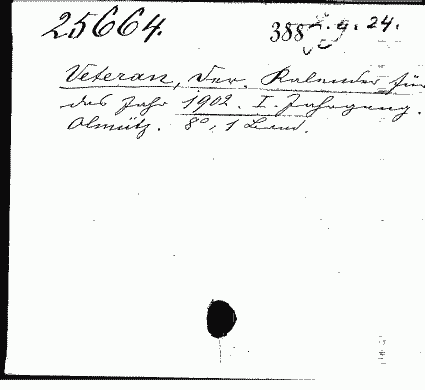 25664. 388 24.
Veteran, Der. Kalender für
das Jahr 1902. I. Jahrgang.
Olmütz. 8°, 1 Band.